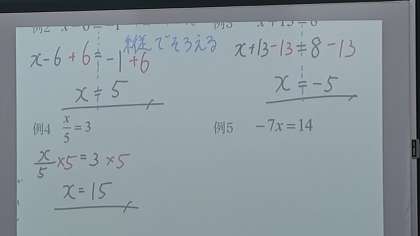 例2 x−6=−1
x−6+6=−1+6
縦でそろえる
x=5
例3 x+13=8
x+13−13=8−13
x=−5
例4 x/5=3
x/5×5=3×5
x=15
例5 −7x=14